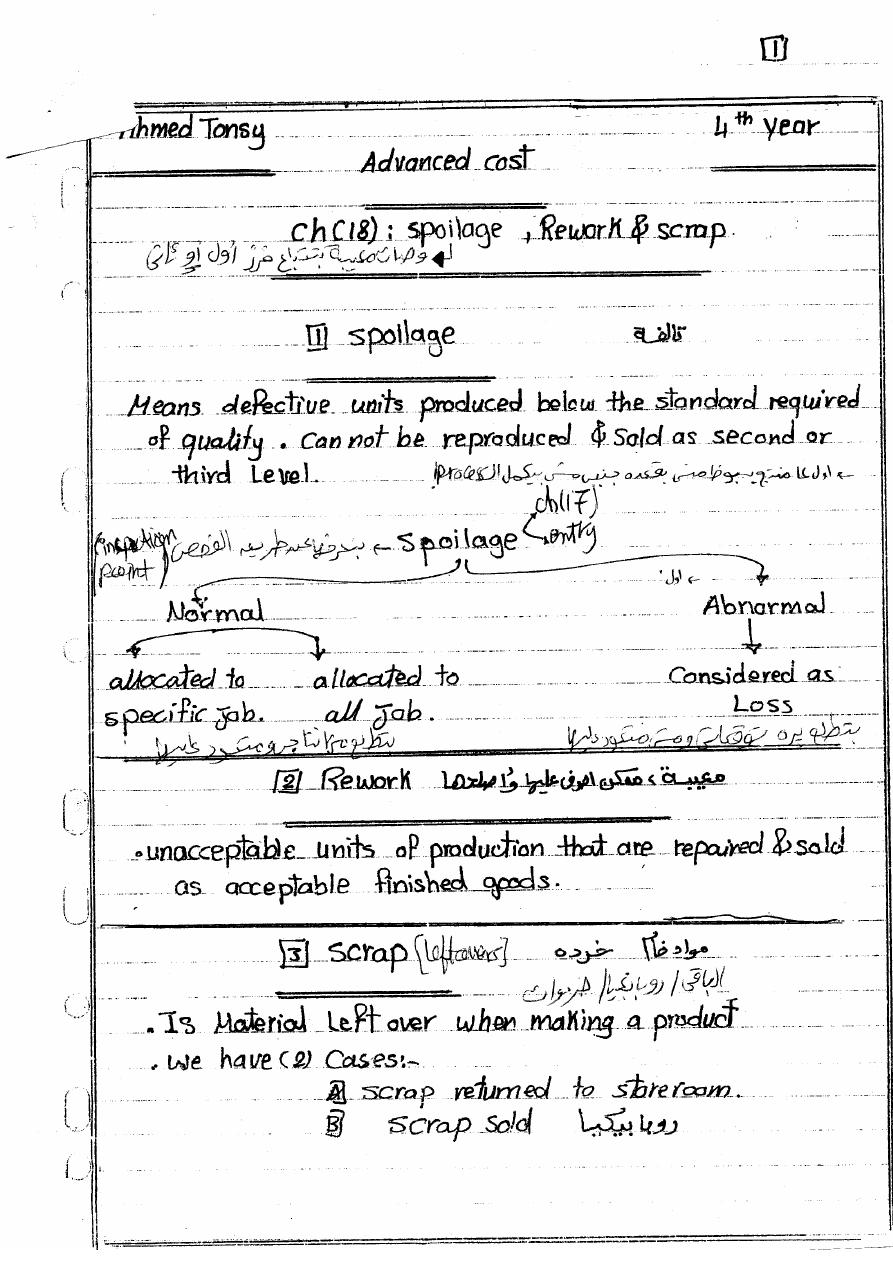 1
Ahmed Tonsy 4th year
Advanced cost
ch(18): spoilage , Rework & scrap.
وحدات معيبة بتتباع فرز أول أو تاني
1 spoilage تالفة
Means defective units produced below the standard required
of quality . Can not be reproduced & Sold as second or
third Level.
process
ch(17)
(inspection Spoilage entry
point) عن طريق الفحص
اول
Normal Abnormal
allocated to allocated to Considered as
specific Job. all Job. Loss
2 Rework معيبة، ممكن اصرف عليها وأصلحها
• unacceptable units of production that are repaired & sold
as acceptable finished goods.
3 scrap [leftovers] خردة مواد خام
الباقي / روبابيكيا /
. Is Material Left over when making a product
. We have (2) Cases:-
A scrap returned to storeroom.
B scrap sold روبابيكيا